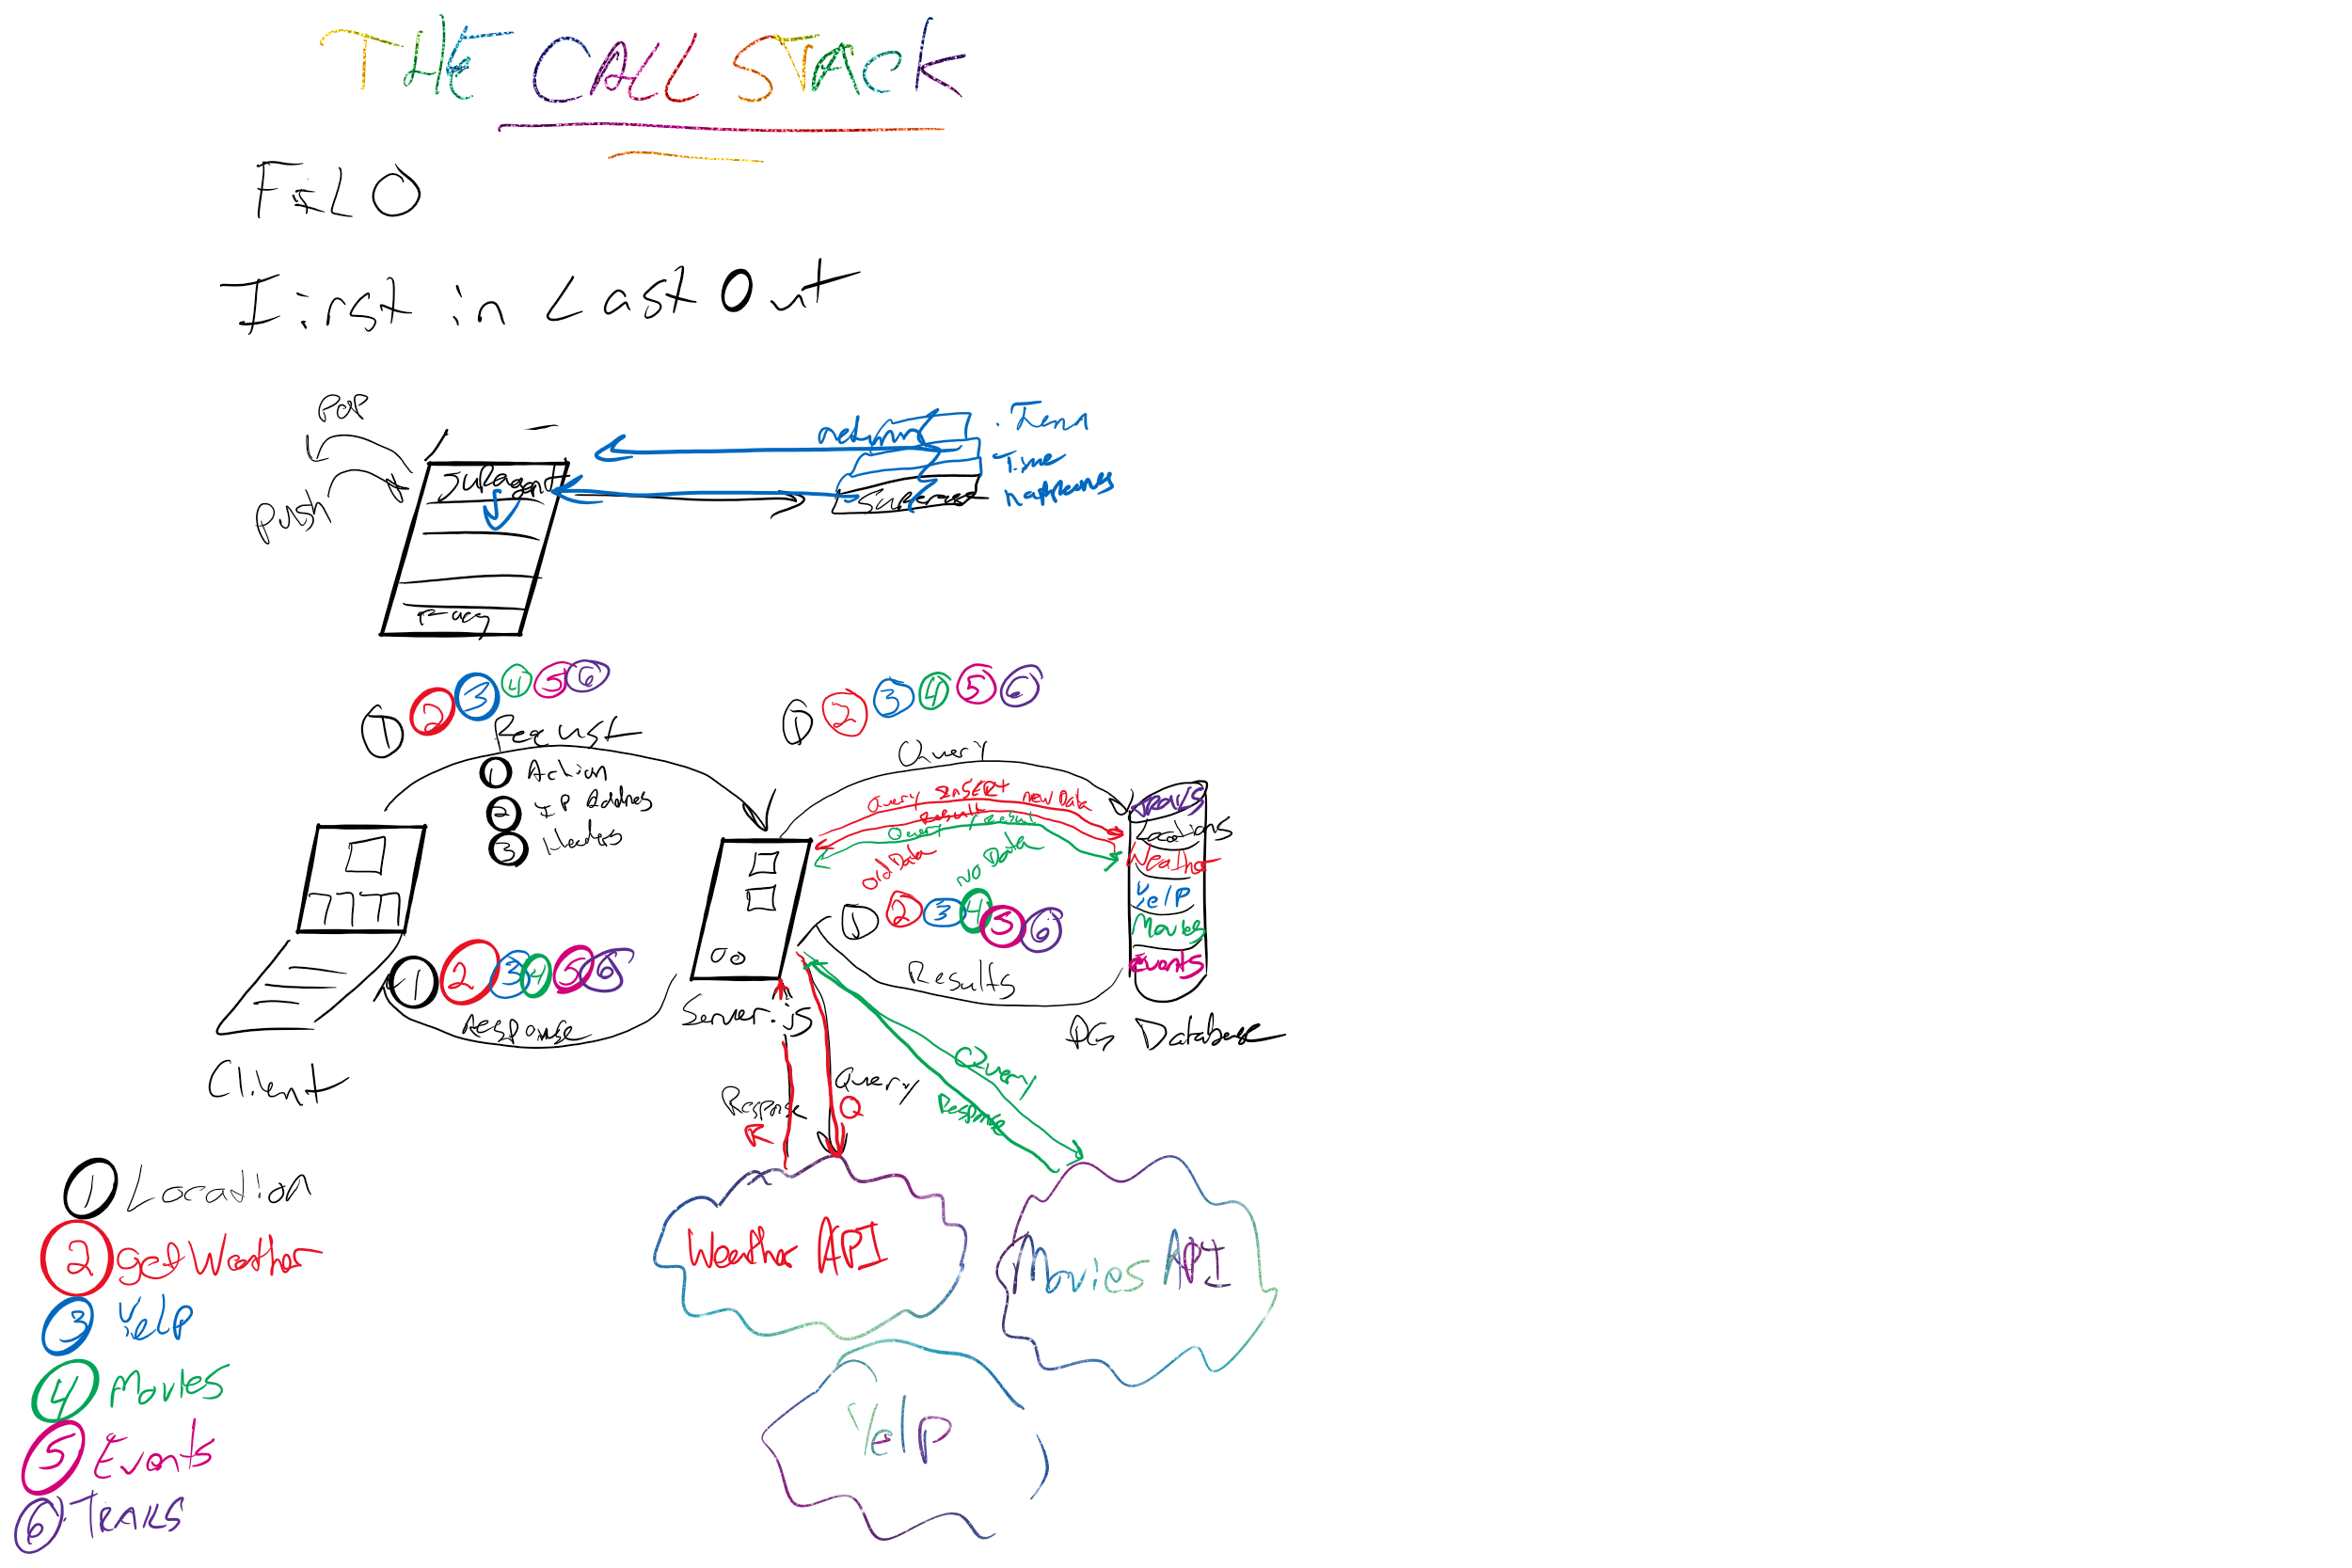 THE CALL STACK
FILO
First in Last Out
POP
Push
return
Time
happens
① ② ③ ④ ⑤ ⑥
Request
① Action
② IP Address
③ Headers
① ② ③ ④ ⑤ ⑥
Query
Query INSERT new Data
Result
Query / Result
Old Data
NO Data
① ② ③ ④ ⑤ ⑥
Results
Trails
Locations
Weather
Yelp
Movies
Events
PG Database
① ② ③ ④ ⑤ ⑥
Response
Client
Server.js
Response
Query
Q
R
Query
Response
Weather API
Movies API
Yelp
① Location
② getWeather
③ Yelp
④ Movies
⑤ Events
⑥ Trails